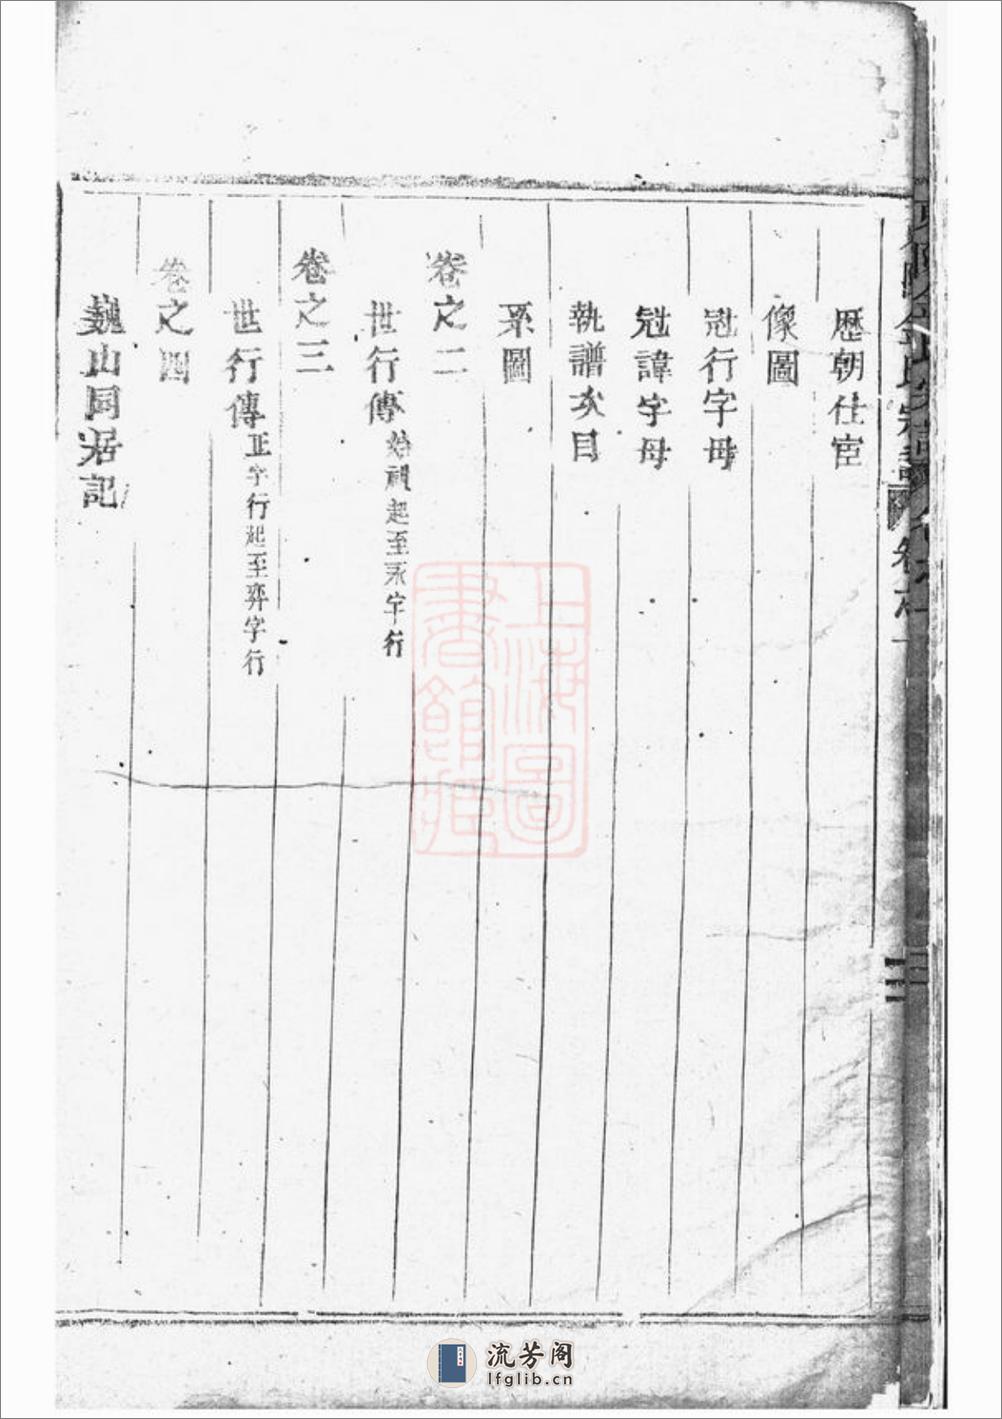 歷朝仕宦
像圖
冠行字毋
冠諱字毋
執譜次目
系圖
卷之二
世行傳 始祖起至永字行
卷之三
世行傳 正字行起至弈字行
卷之四
巍山同居記
上海圖
書館藏
流芳阁
lfglib.cn